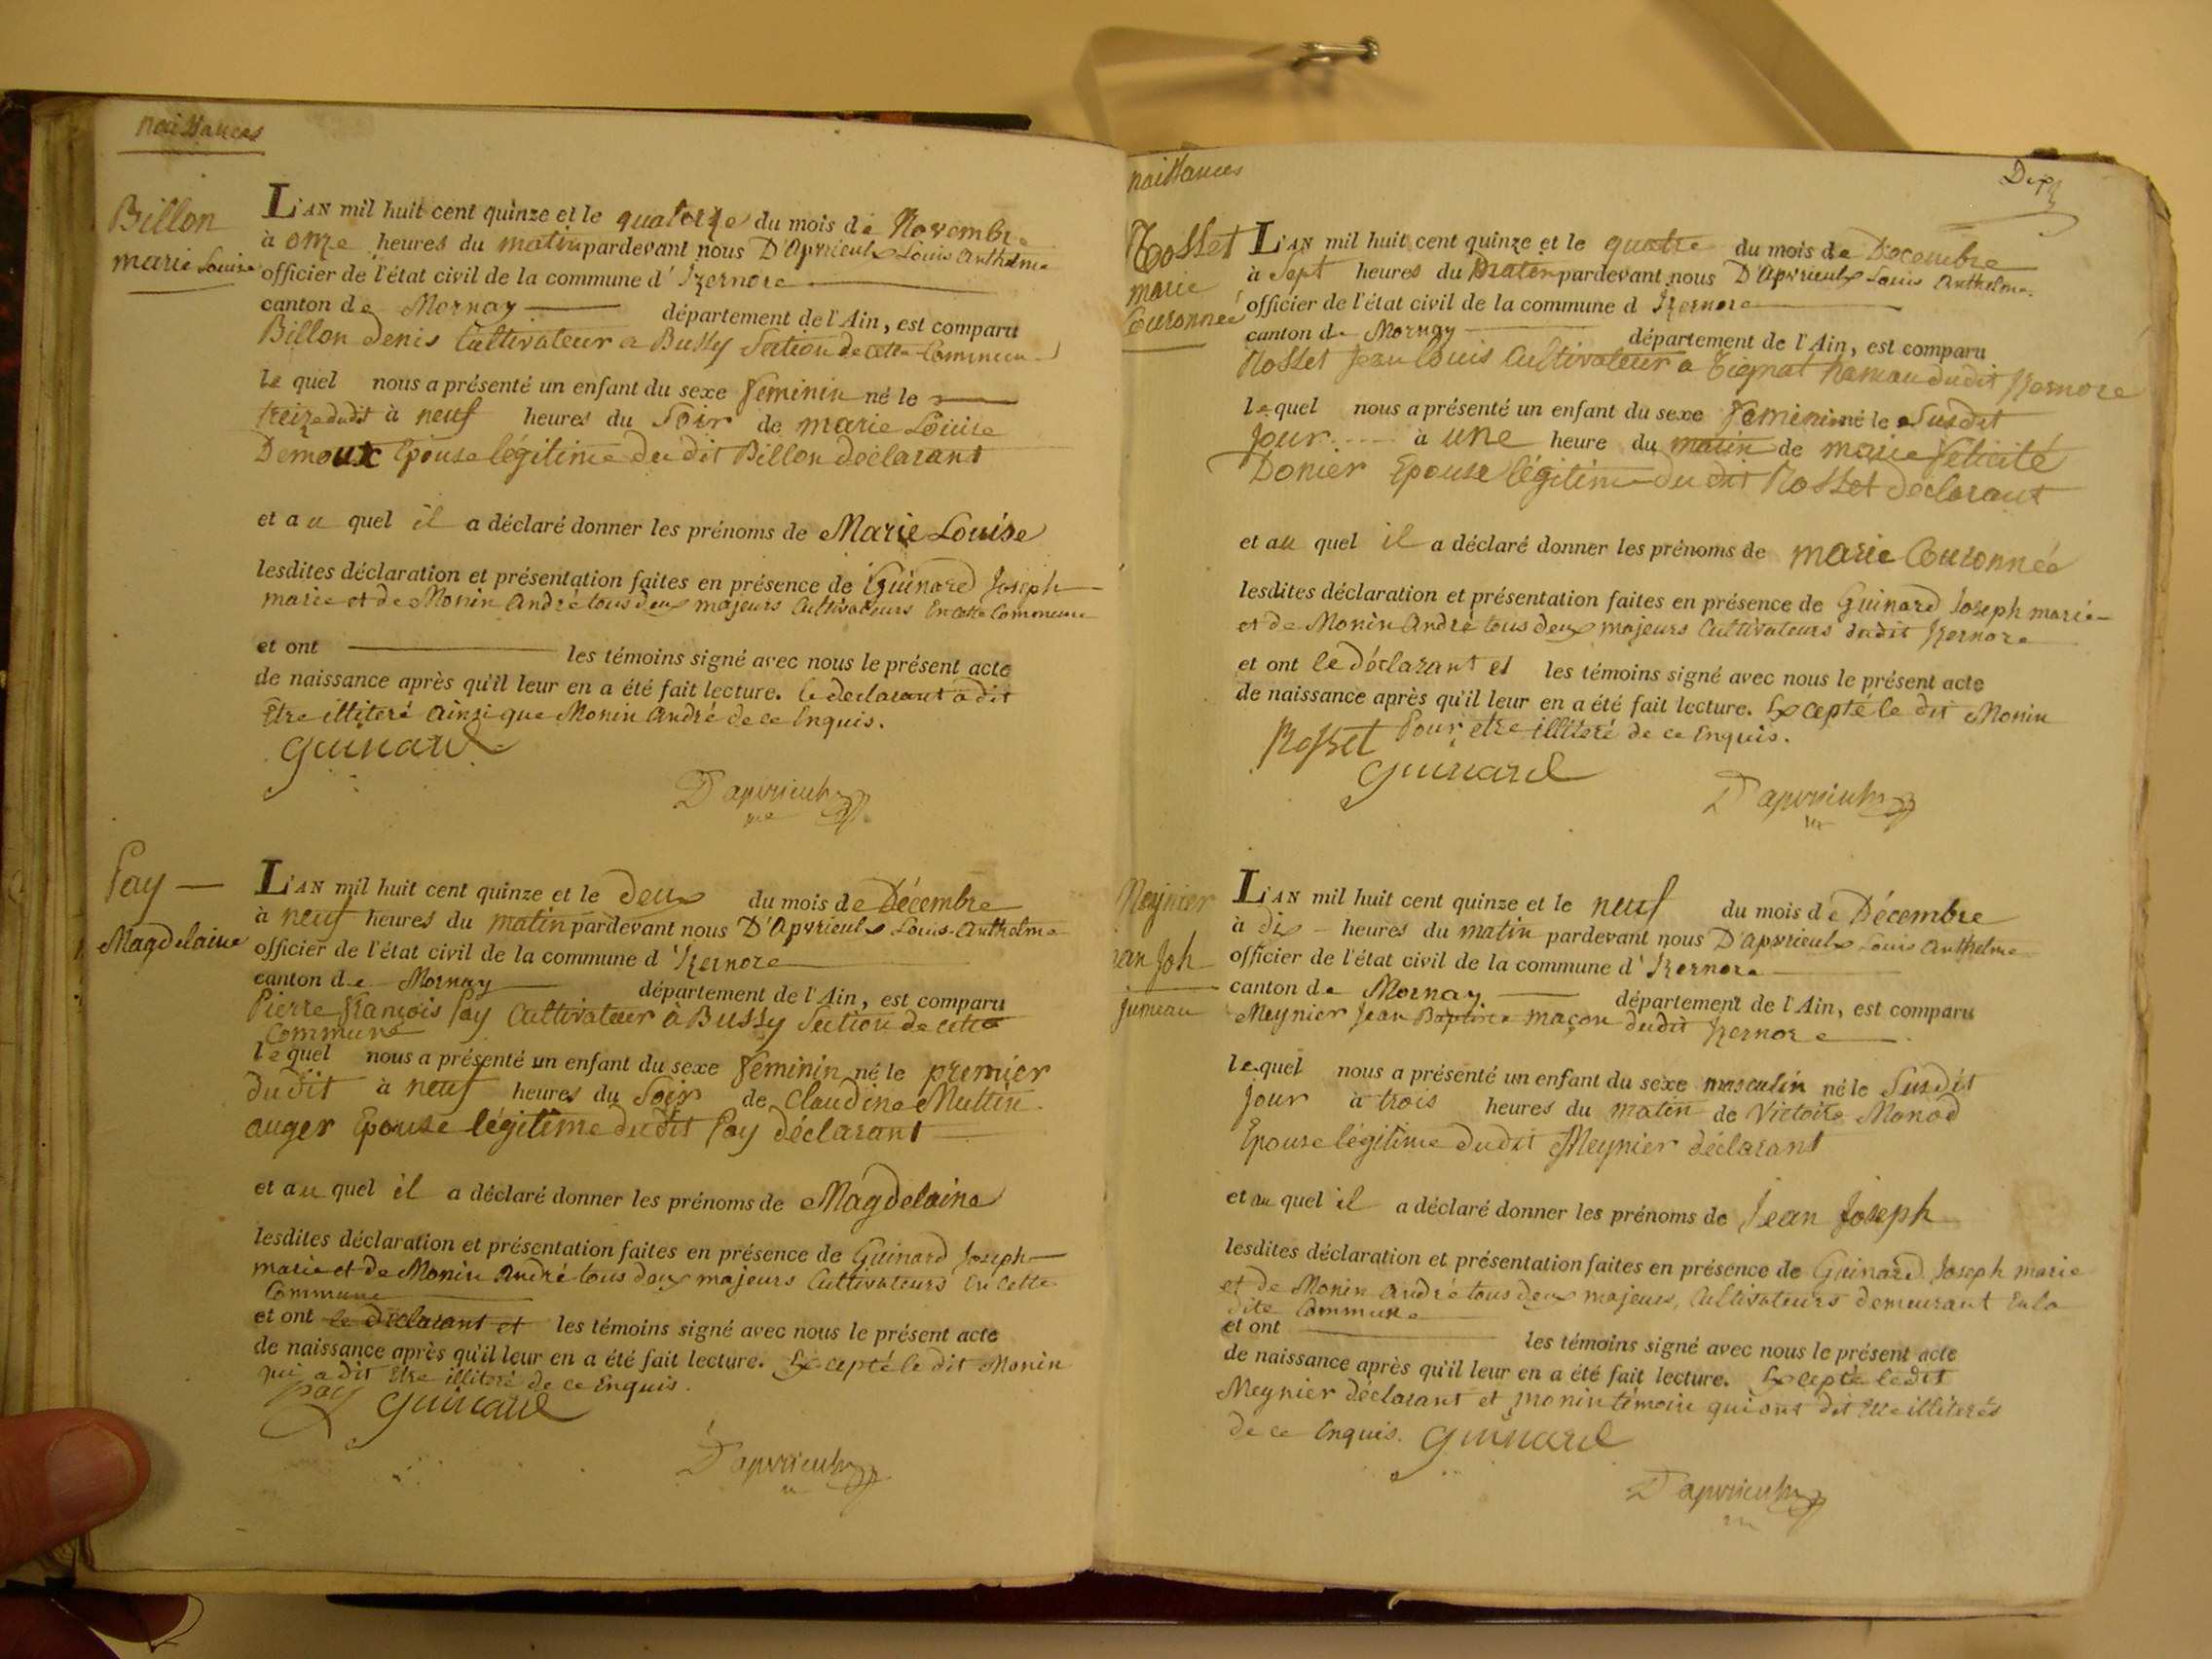 naissances
Billon
marie Louise
L'AN mil huit cent quinze et le quatorze du mois de Novembre
à onze heures du matin pardevant nous D'Apvrieulx Louis Anthelme
officier de l'état civil de la commune d'Izernore
canton de Mornay département de l'Ain, est comparu
Billon Denis Cultivateur a Bussy Section de cette Commune
le quel nous a présenté un enfant du sexe feminin né le
treize dudit à neuf heures du Soir de marie Louise
Demoux Epouse légitime du dit Billon déclarant
et au quel il a déclaré donner les prénoms de Marie Louise
lesdites déclaration et présentation faites en présence de Guinard Joseph
marie et de Monin André tous deux majeurs Cultivateurs En cette Commune
et ont les témoins signé avec nous le présent acte
de naissance après qu'il leur en a été fait lecture. le declarant a dit
Etre illiteré ainsi que Monin André de ce Enquis.
Guinard
D'apvrieulx
Fay
Magdelaine
L'AN mil huit cent quinze et le deux du mois de Décembre
à neuf heures du matin pardevant nous D'Apvrieulx Louis Anthelme
officier de l'état civil de la commune d'Izernore
canton de Mornay département de l'Ain, est comparu
Pierre François Fay Cultivateur à Bussy Section de cette
Commune
le quel nous a présenté un enfant du sexe feminin né le premier
du dit à neuf heures du Soir de Claudine Multin
auger Epouse légitime du dit Fay déclarant
et au quel il a déclaré donner les prénoms de Magdelaine
lesdites déclaration et présentation faites en présence de Guinard Joseph
marie et de Monin André tous deux majeurs Cultivateurs En Cette
Commune
et ont le déclarant et les témoins signé avec nous le présent acte
de naissance après qu'il leur en a été fait lecture. Excepté le dit Monin
qui a dit Etre illiteré de ce Enquis.
Fay Guinard
D'apvrieulx
naissances
Dix
Rosset
marie
Couronnée
L'AN mil huit cent quinze et le quatre du mois de Decembre
à Sept heures du matin pardevant nous D'Apvrieulx Louis Anthelme
officier de l'état civil de la commune d Izernore
canton de Mornay département de l'Ain, est comparu
Rosset Jean Louis Cultivateur a Tignat hameau dudit Izernore
le quel nous a présenté un enfant du sexe feminin né le Susdit
Jour à une heure du matin de marie félicité
Donier Epouse légitime du dit Rosset déclarant
et au quel il a déclaré donner les prénoms de marie Couronnée
lesdites déclaration et présentation faites en présence de Guinard Joseph marie
et de Monin André tous deux majeurs Cultivateurs dudit Izernore
et ont le déclarant et les témoins signé avec nous le présent acte
de naissance après qu'il leur en a été fait lecture. Excepté le dit Monin
Pour etre illiteré de ce Enquis.
Rosset
Guinard
D'apvrieulx
Meynier
jean Joh
jumeau
L'AN mil huit cent quinze et le neuf du mois de Décembre
à dix heures du matin pardevant nous D'Apvrieulx Louis Anthelme
officier de l'état civil de la commune d'Izernore
canton de Mornay département de l'Ain, est comparu
Meynier Jean Baptiste maçon dudit Izernore
le quel nous a présenté un enfant du sexe masculin né le Susdit
Jour à trois heures du matin de Victoire Monod
Epouse légitime du dit Meynier déclarant
et au quel il a déclaré donner les prénoms de Jean Joseph
lesdites déclaration et présentation faites en présence de Guinard Joseph marie
et de Monin André tous deux majeurs, Cultivateurs demeurant En la
dite Commune
et ont les témoins signé avec nous le présent acte
de naissance après qu'il leur en a été fait lecture. Excepté le dit
Meynier déclarant et monin témoin qui ont dit Etre illiterés
de ce Enquis. Guinard
D'apvrieulx